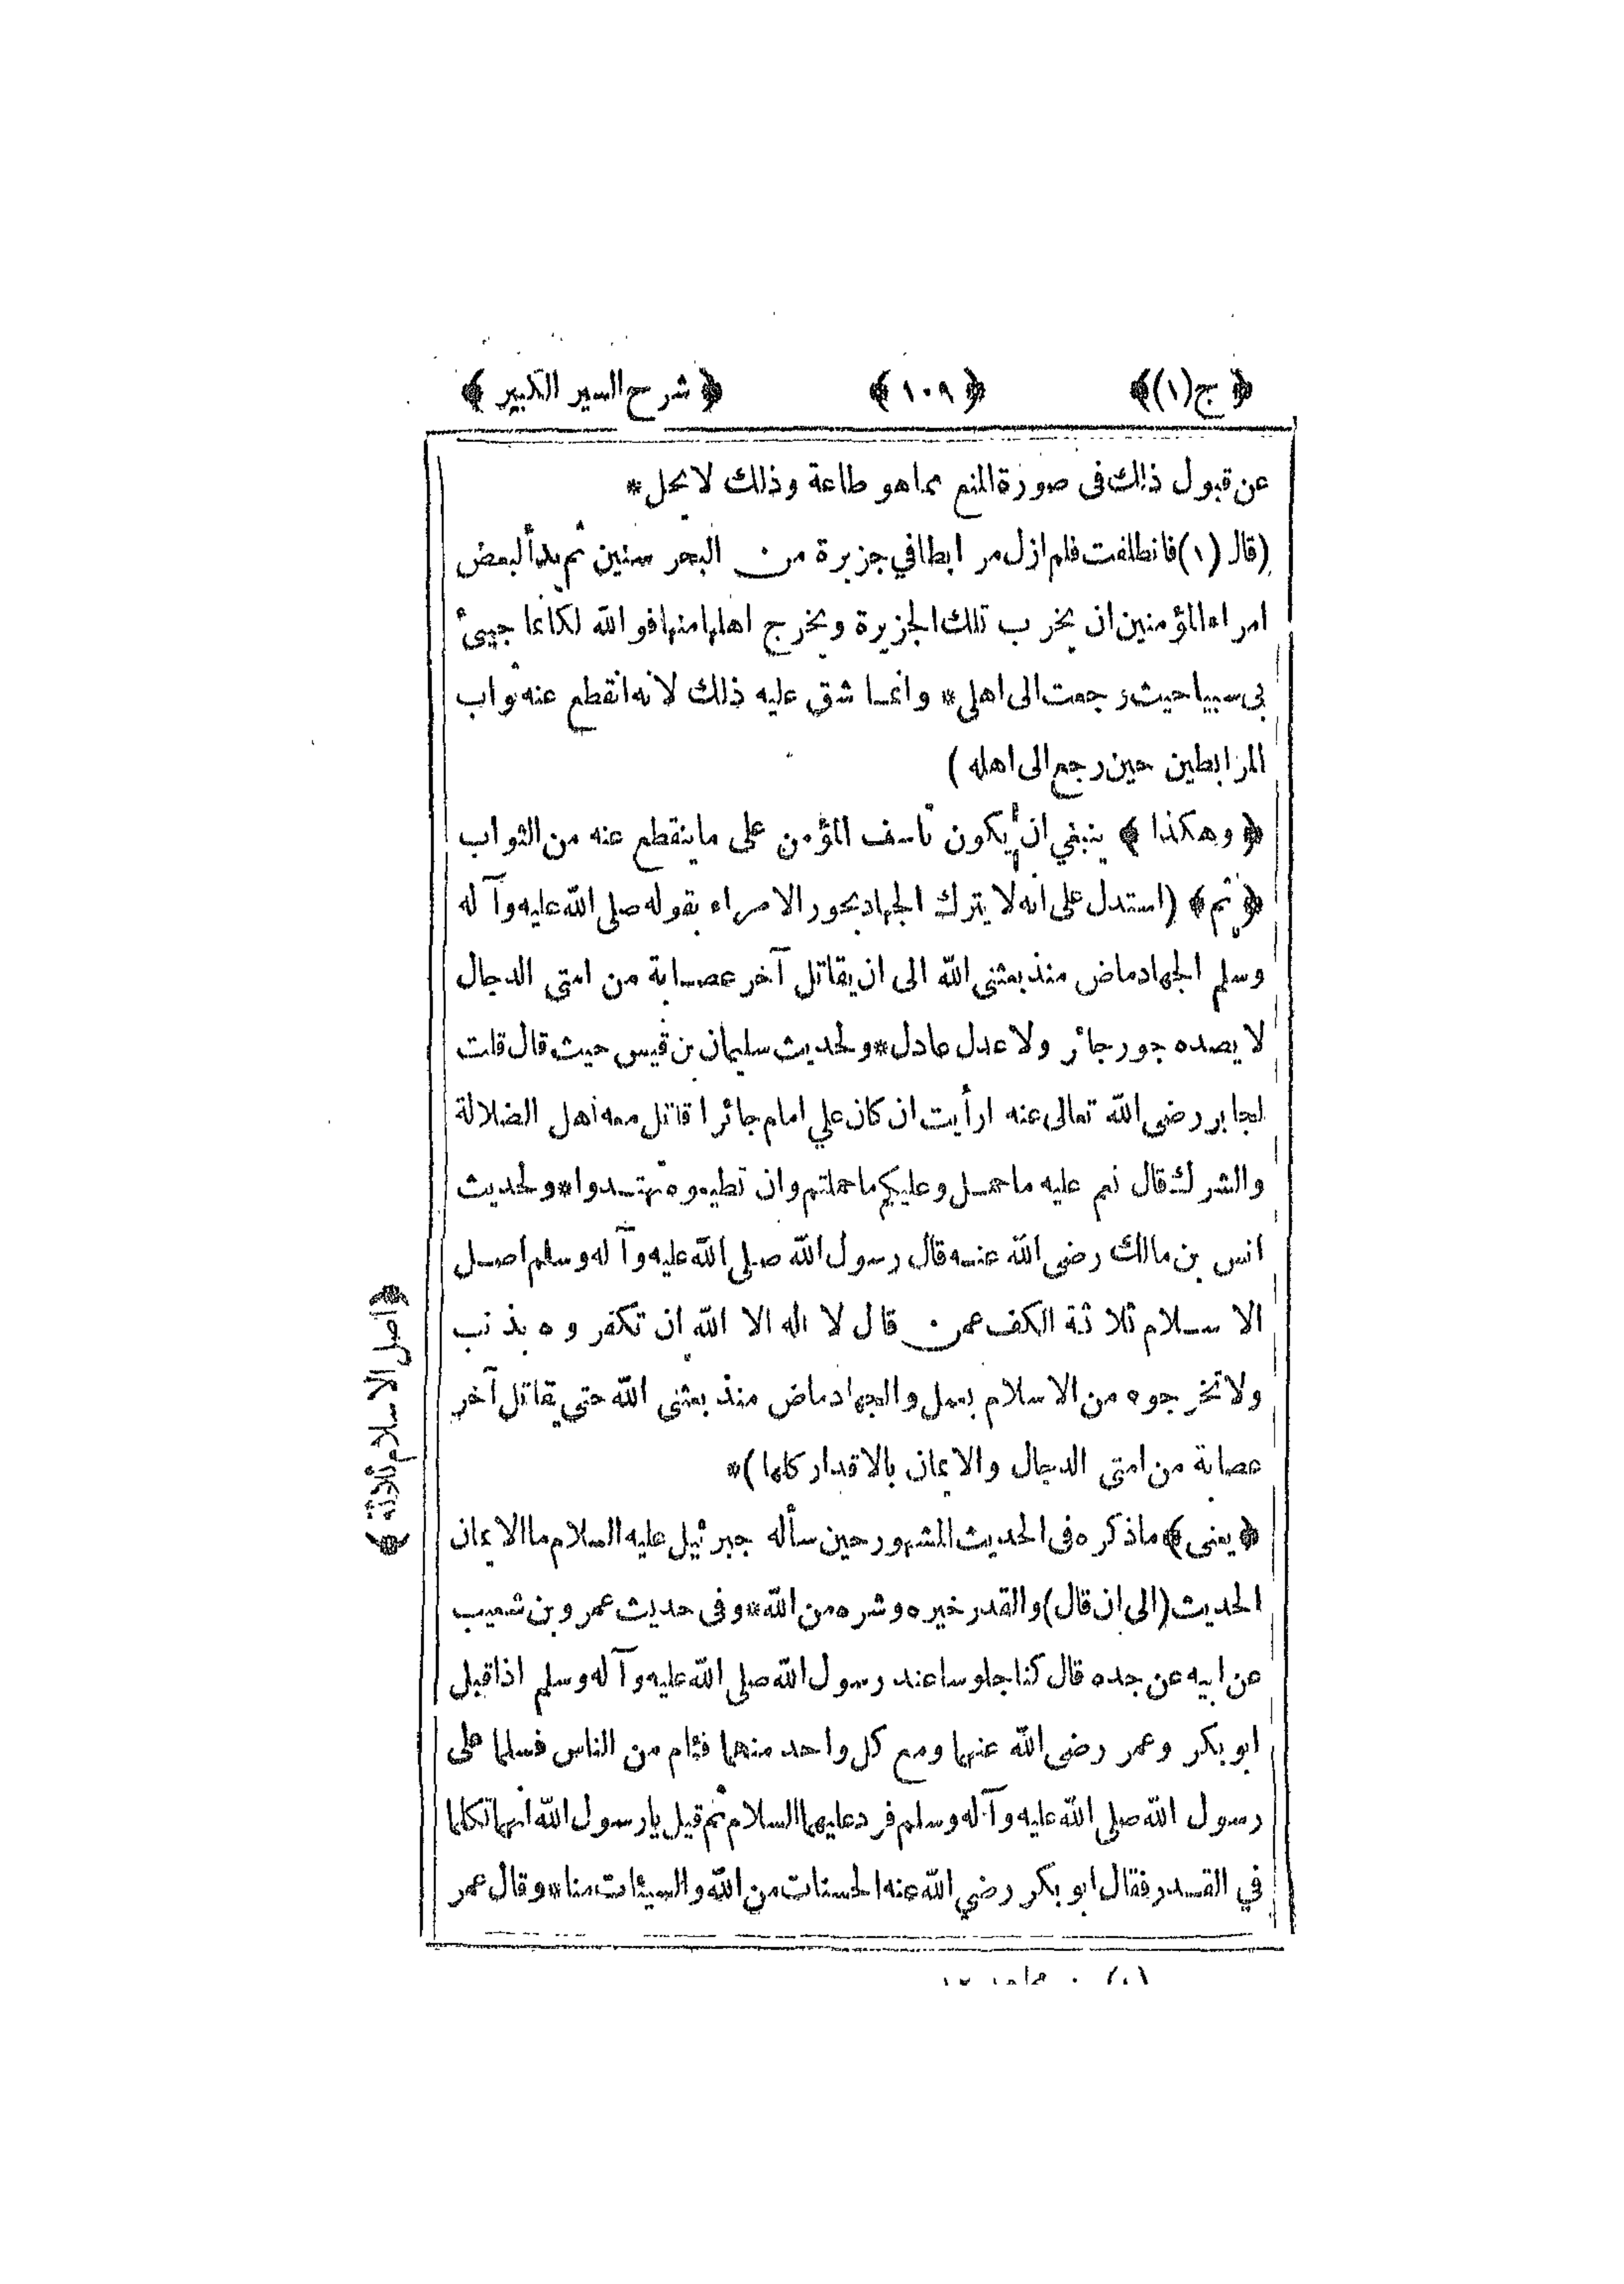 ﴿ ج (١) ﴾ ﴿ ١٠٩ ﴾ ﴿ شرح السير الكبير ﴾
عن قبول ذلك فى صورة المنع مما هو طاعة وذلك لا يحل *
(قال (١) فانطلقت فلم ازل مرابطا في جزيرة من البحر سنين ثم بدأ لبعض
امراء المؤمنين ان يخرب تلك الجزيرة ويخرج اهلها منها فو الله لكأنما جيئ
بى سبيا حيث رجعت الى اهلى * وانما شق عليه ذلك لانه انقطع عنه ثواب
المرابطين حين رجع الى اهله )
﴿ وهكذا ﴾ ينبغي ان يكون تأسف المؤمن على ما ينقطع عنه من الثواب
﴿ ثم ﴾ (استدل على انه لا يترك الجهاد بجور الامراء بقوله صلى الله عليه وآله
وسلم الجهاد ماض منذ بعثنى الله الى ان يقاتل آخر عصابة من امتى الدجال
لا يصده جور جائر ولا عدل عادل * ولحديث سليمان بن قيس حيث قال قلت
لجابر رضى الله تعالى عنه ارأيت ان كان علي امام جائر اقاتل معه اهل الضلالة
والشرك قال نعم عليه ما حمل وعليكم ما حملتم وان تطيعوه تهتدوا * ولحديث
انس بن مالك رضى الله عنه قال رسول الله صلى الله عليه وآله وسلم اصل
الاسلام ثلاثة الكف عمن قال لا اله الا الله ان تكفروه بذنب
ولا تخرجوه من الاسلام بعمل والجهاد ماض منذ بعثنى الله حتى يقاتل آخر
عصابة من امتى الدجال والايمان بالاقدار كلها ) *
﴿ يعنى ﴾ ما ذكره فى الحديث المشهور حين سأله جبرئيل عليه السلام ما الايمان
الحديث (الى ان قال) والقدر خيره وشره من الله * وفى حديث عمرو بن شعيب
عن ابيه عن جده قال كنا جلوسا عند رسول الله صلى الله عليه وآله وسلم اذا قبل
ابو بكر وعمر رضى الله عنهما ومع كل واحد منهما فئام من الناس فسلما على
رسول الله صلى الله عليه وآله وسلم فرد عليهما السلام ثم قيل يا رسول الله انهما تكلما
في القدر فقال ابو بكر رضي الله عنه الحسنات من الله والسيئات منا * وقال عمر
﴿ اصل الاسلام ثلاثة ﴾